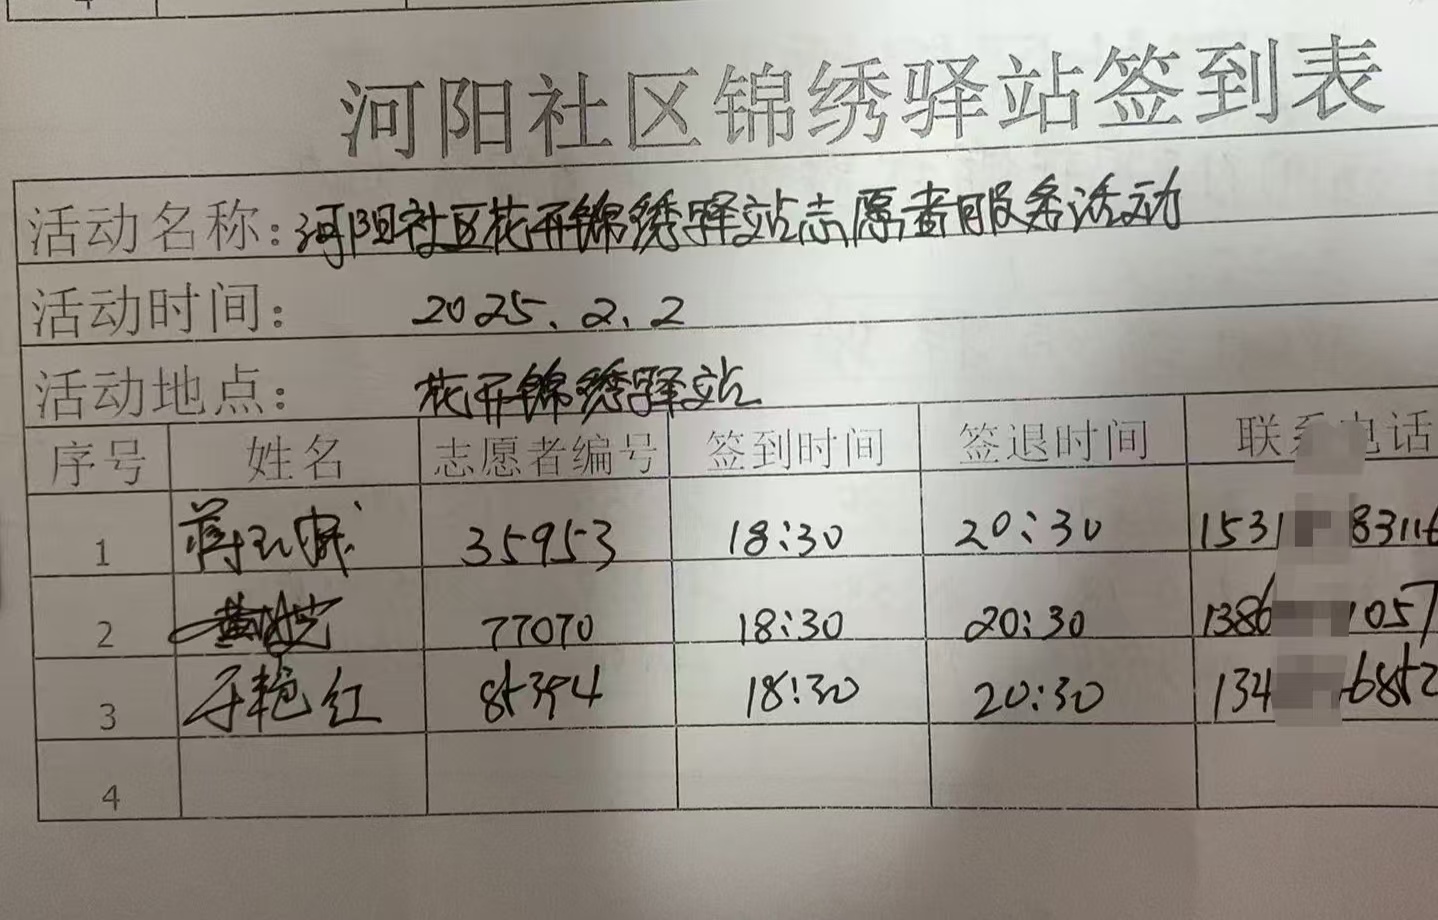 4
河阳社区锦绣驿站签到表
活动名称:河阳社区花开锦绣驿站志愿者服务活动
活动时间: 2025.2.2
活动地点: 花开锦绣驿站
序号 姓名 志愿者编号 签到时间 签退时间 联系电话
1 蒋 35953 18:30 20:30 1531 83116
2 黄 77070 18:30 20:30 1386 1057
3 于艳红 85394 18:30 20:30 134 6852
4